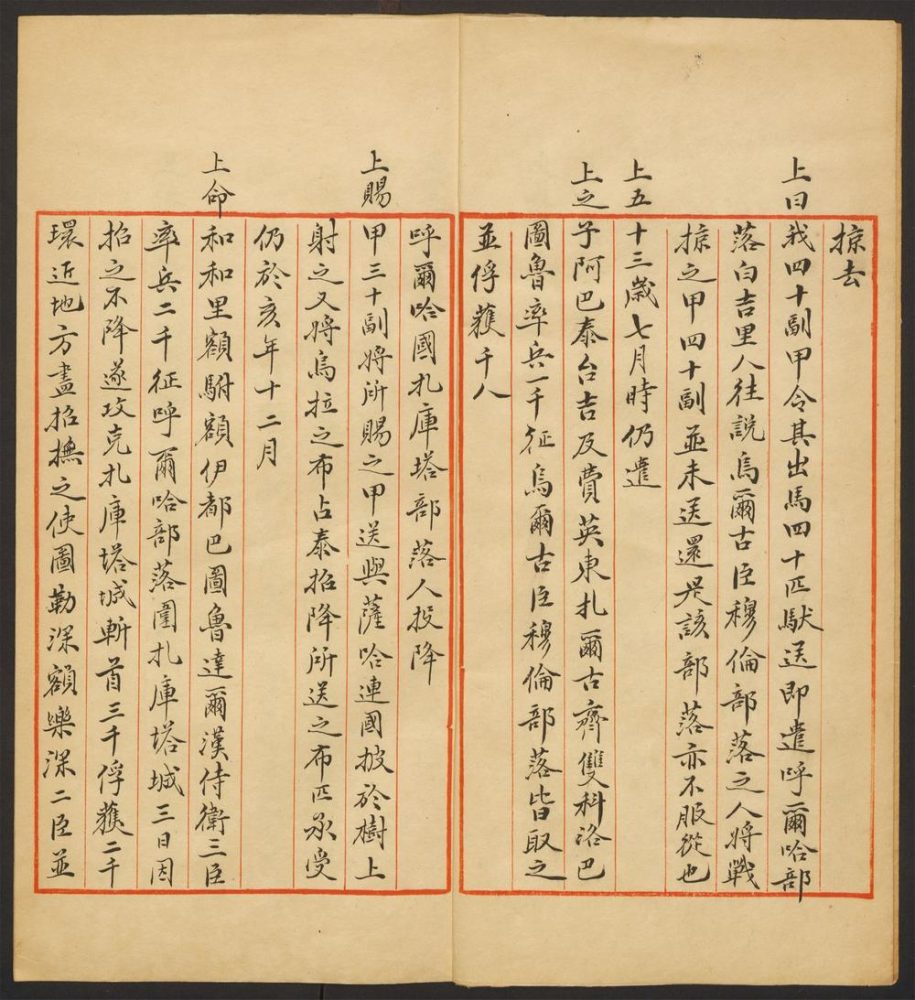 掠去
上曰我四十副甲令其出馬四十匹馱送即遣呼爾哈部
落白吉里人往説烏爾古臣穆倫部落之人將戰
掠之甲四十副並未送還是該部落亦不服從也
上五十三歲七月時仍遣
上之子阿巴泰台吉及費英東扎爾古齊雙科洛巴
圖魯率兵一千征烏爾古臣穆倫部落皆取之
並俘獲千人
呼爾哈國扎庫塔部落人投降
上賜甲三十副將所賜之甲送與薩哈連國披於樹上
射之又將烏拉之布占泰招降所送之布匹承受
仍於亥年十二月
上命和和里額駙額伊都巴圖魯達爾漢侍衛三臣
率兵二千征呼爾哈部落圍扎庫塔城三日因
招之不降遂攻克扎庫塔城斬首三千俘獲二千
環近地方盡招撫之使圖勒深額樂深二臣並